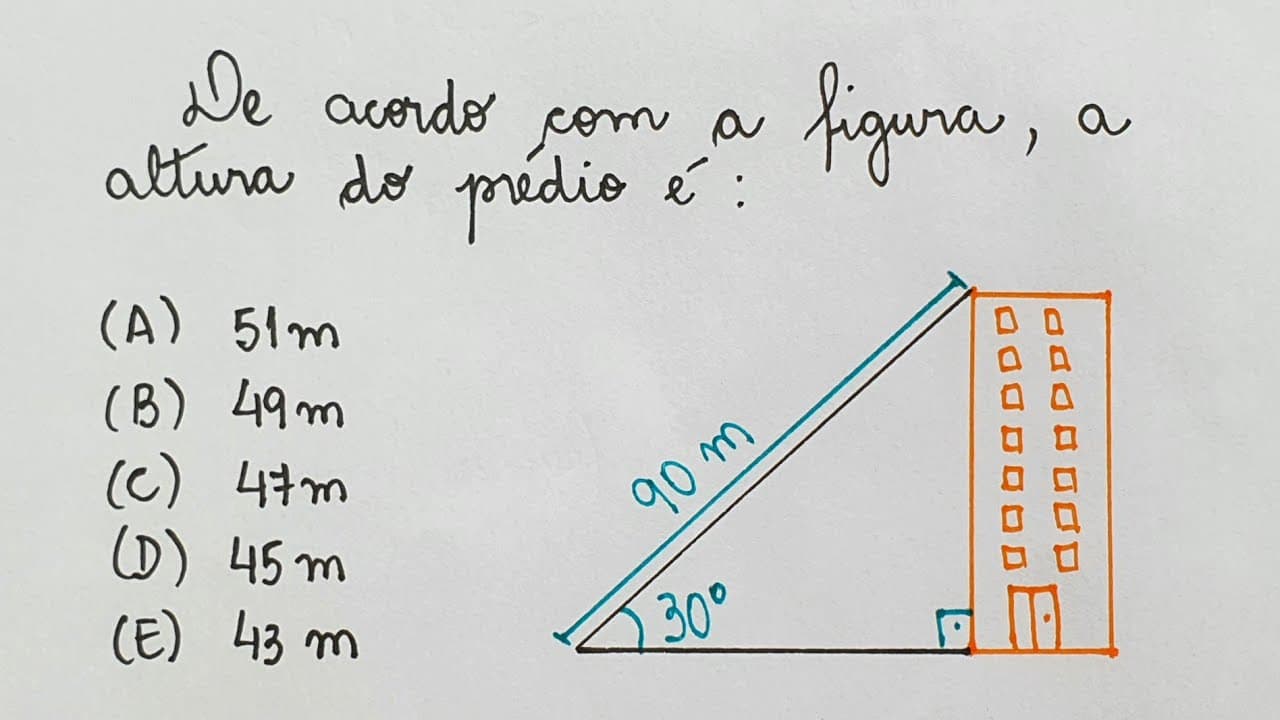 De acordo com a figura, a
altura do prédio é:
(A) 51m
(B) 49m
(C) 47m
(D) 45 m
(E) 43 m
90 m
30°